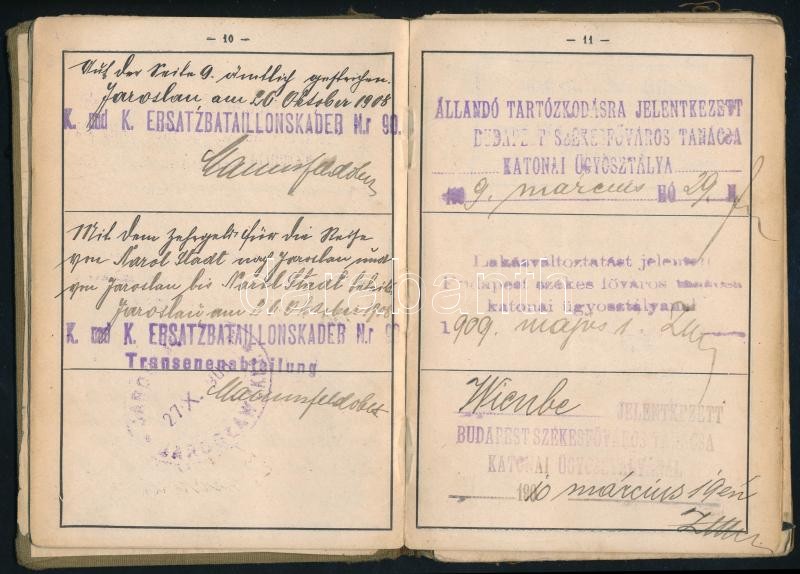 - 10 -
Auf der Seite 9. ämtlich gestrichen.
Jaroslau, am 26 Oktober 1908
K. und K. ERSATZBATAILLONSKADER N.r 90.
Mit dem Zehrgeld für die Reise
von Narol Stadt nach Jaroslau und
von Jaroslau bis Narol Stadt beteilt
Jaroslau am 26 Oktober 1908
K. und K. ERSATZBATAILLONSKADER N.r 90
Transenenabteilung
27.X.
- 11 -
ÁLLANDÓ TARTÓZKODÁSRA JELENTKEZETT
BUDAPEST SZÉKESFŐVÁROS TANÁCSA
KATONAI ÜGYOSZTÁLYA
1909. március HÓ 29. N.
Lakásváltoztatást jelentett
Budapest székes főváros tanácsa
katonai ügyosztályánál
1909. május 1.
darabanth
Wienbe JELENTKEZETT
BUDAPEST SZÉKESFŐVÁROS TANÁCSA
KATONAI ÜGYOSZTÁLYÁNÁL
március 1 én